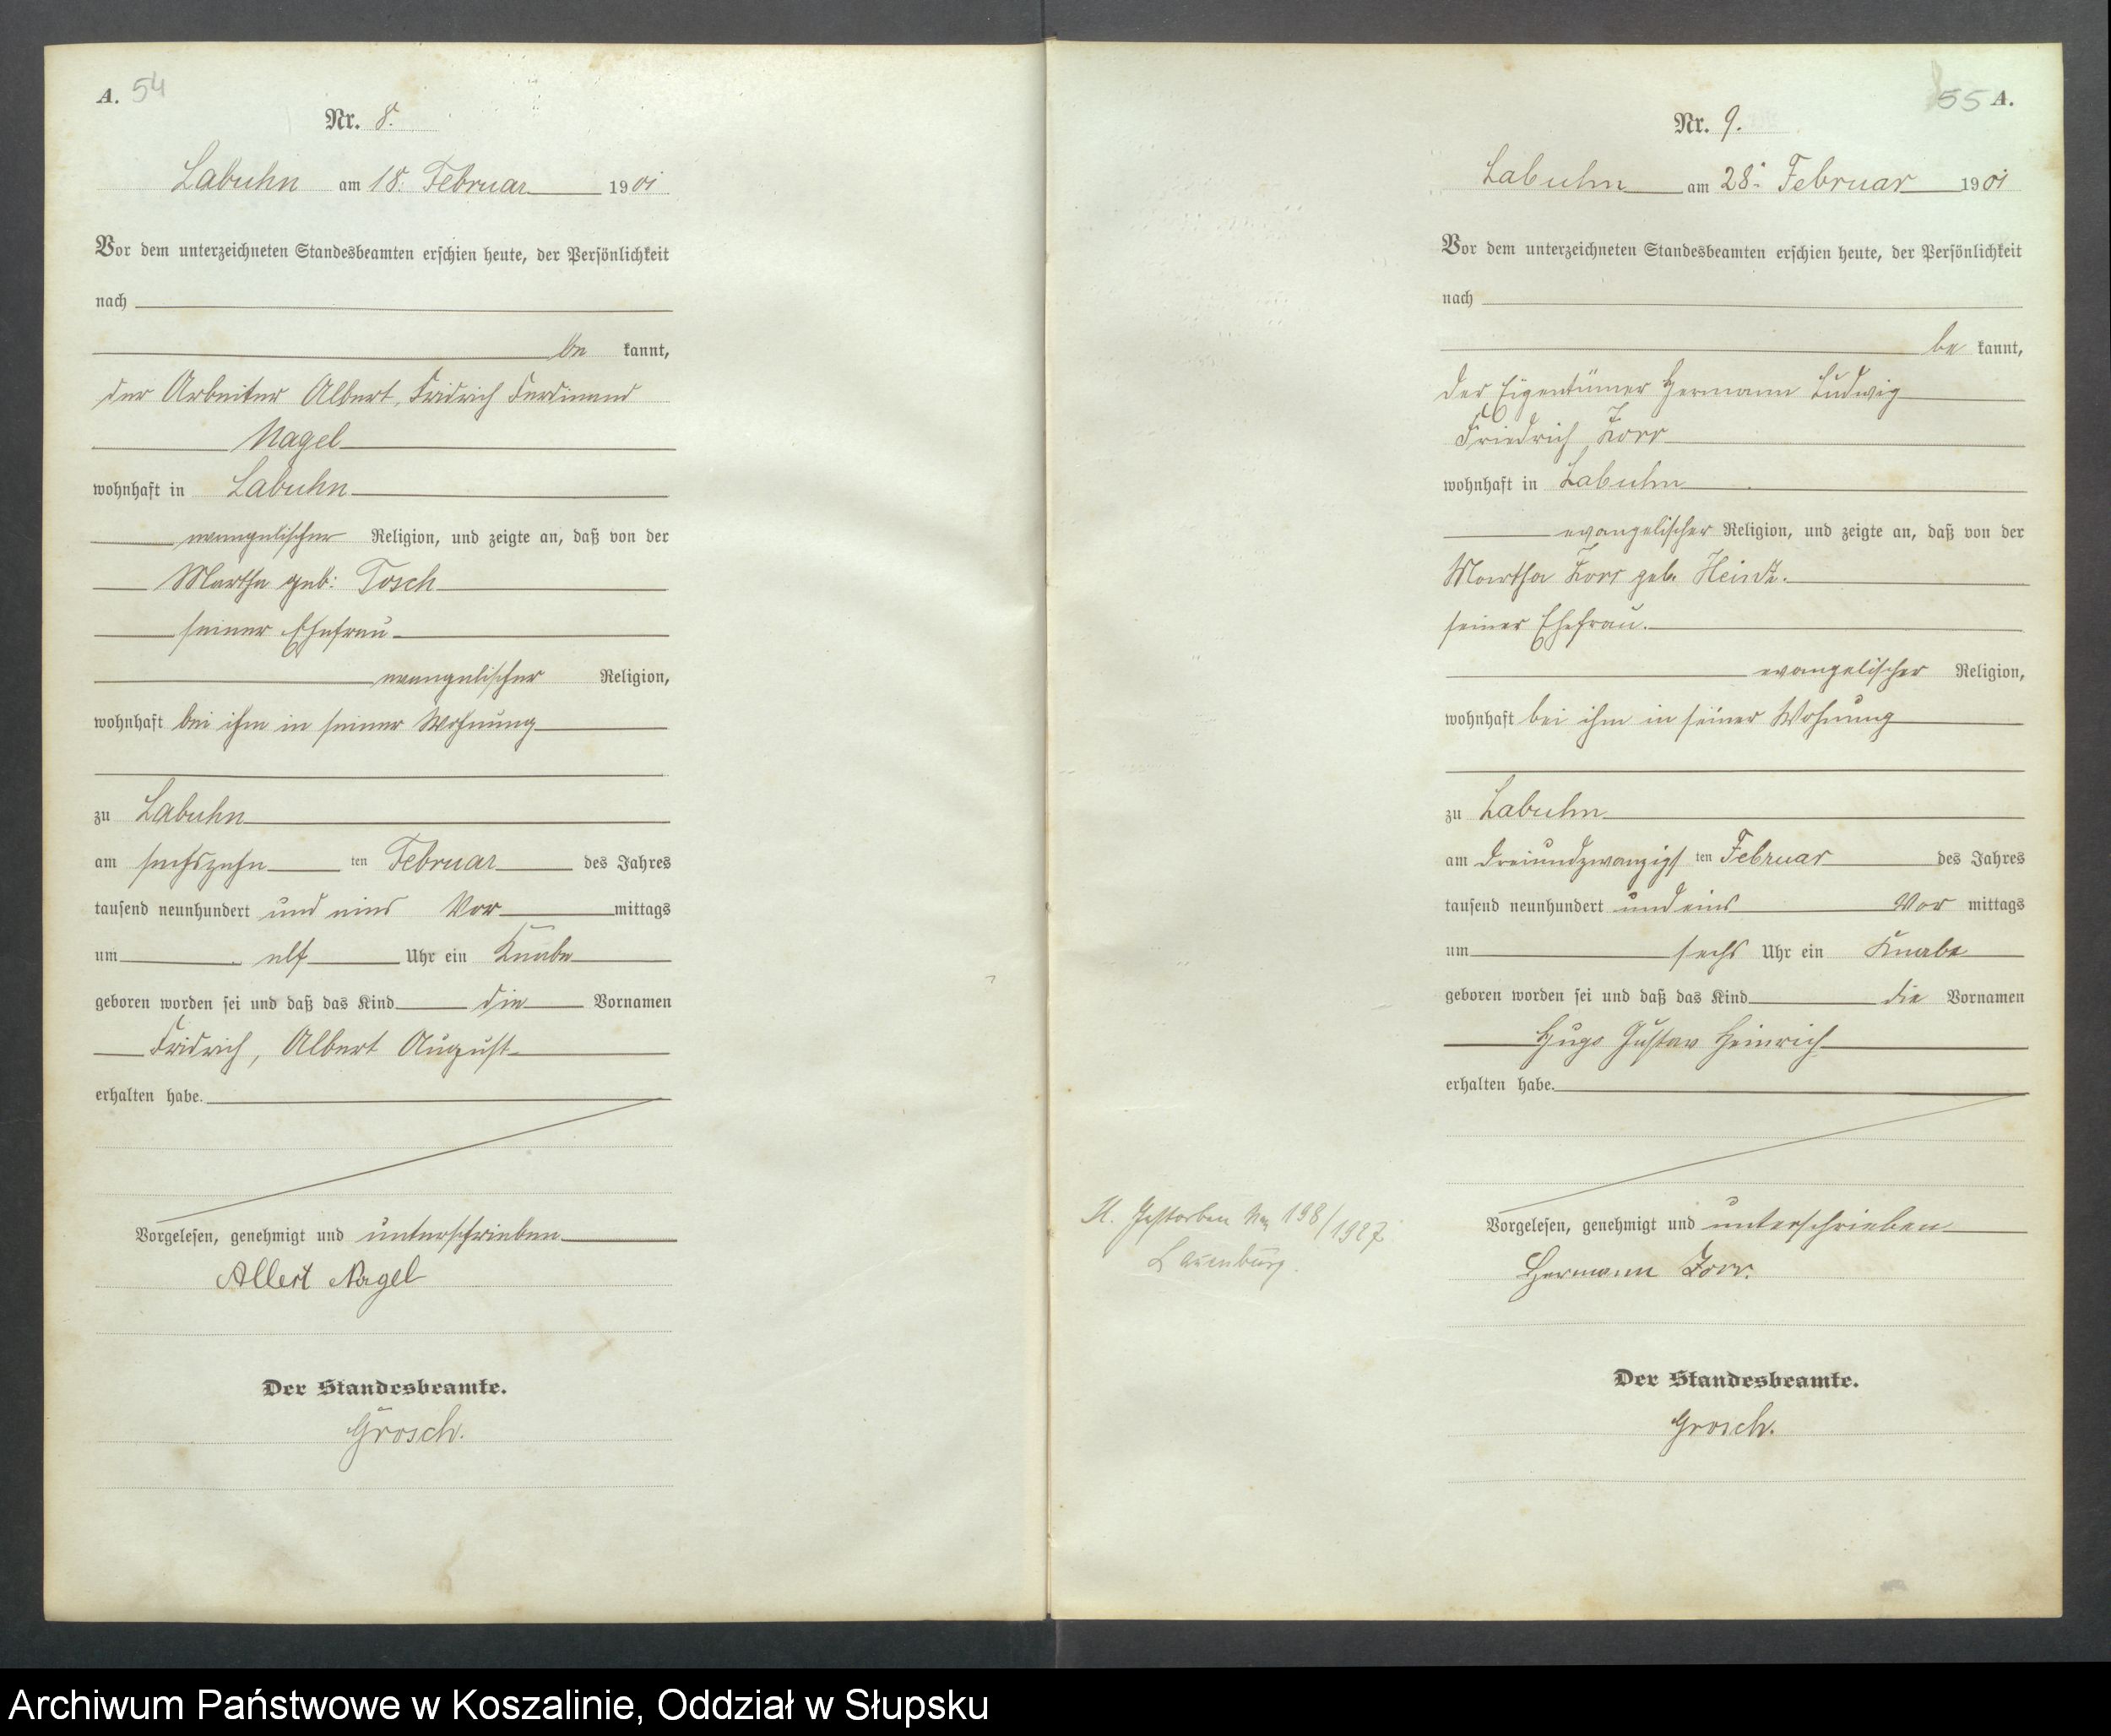 A. 54
Nr. 8.
Labuhn am 18. Februar 1901
Vor dem unterzeichneten Standesbeamten erschien heute, der Persönlichkeit
nach
be kannt,
der Arbeiter Albert, Fridrich Ferdinand
Nagel
wohnhaft in Labuhn
evangelischer Religion, und zeigte an, daß von der
Martha geb: Tosch
seiner Ehefrau
evangelischer Religion,
wohnhaft bei ihm in seiner Wohnung
zu Labuhn
am sechszehn ten Februar des Jahres
tausend neunhundert und eins Vor mittags
um elf Uhr ein Knabe
geboren worden sei und daß das Kind die Vornamen
Fridrich, Albert August
erhalten habe.
Vorgelesen, genehmigt und unterschrieben
Albert Nagel
Der Standesbeamte.
Grosch.
55 A.
Nr. 9.
Labuhn am 28. Februar 1901
Vor dem unterzeichneten Standesbeamten erschien heute, der Persönlichkeit
nach
be kannt,
der Eigentümer Hermann Ludwig
Friedrich Zorr
wohnhaft in Labuhn
evangelischer Religion, und zeigte an, daß von der
Martha Zorr geb. Heinz.
seiner Ehefrau.
evangelischer Religion,
wohnhaft bei ihm in seiner Wohnung
zu Labuhn
am dreiundzwanzigs ten Februar des Jahres
tausend neunhundert und eins Vor mittags
um sechs Uhr ein Knabe
geboren worden sei und daß das Kind die Vornamen
Hugo Gustav Heinrich
erhalten habe.
H. Gestorben 198/1927
Lauenburg.
Vorgelesen, genehmigt und unterschrieben
Hermann Zorr.
Der Standesbeamte.
Grosch.
Archiwum Państwowe w Koszalinie, Oddział w Słupsku